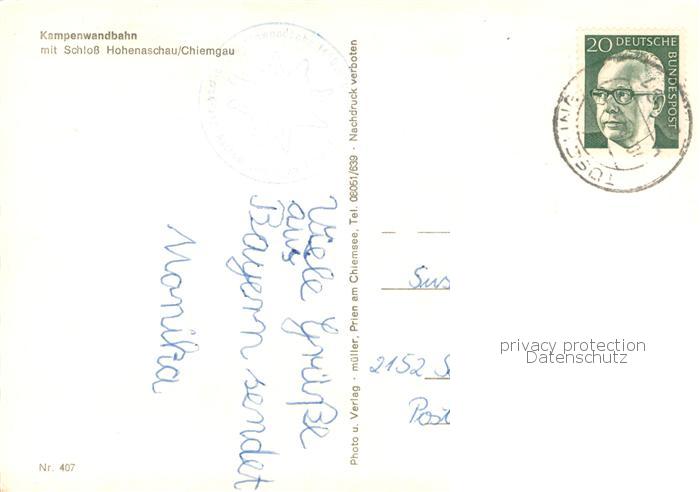 Kampenwandbahn
mit Schloß Hohenaschau/Chiemgau
Viele Grüße
aus
Bayern sendet
Monika
Nr. 407
Photo u. Verlag · müller, Prien am Chiemsee, Tel. 08051/639 · Nachdruck verboten
20 DEUTSCHE
BUNDESPOST
Sus
2152 S
Post
privacy protection
Datenschutz